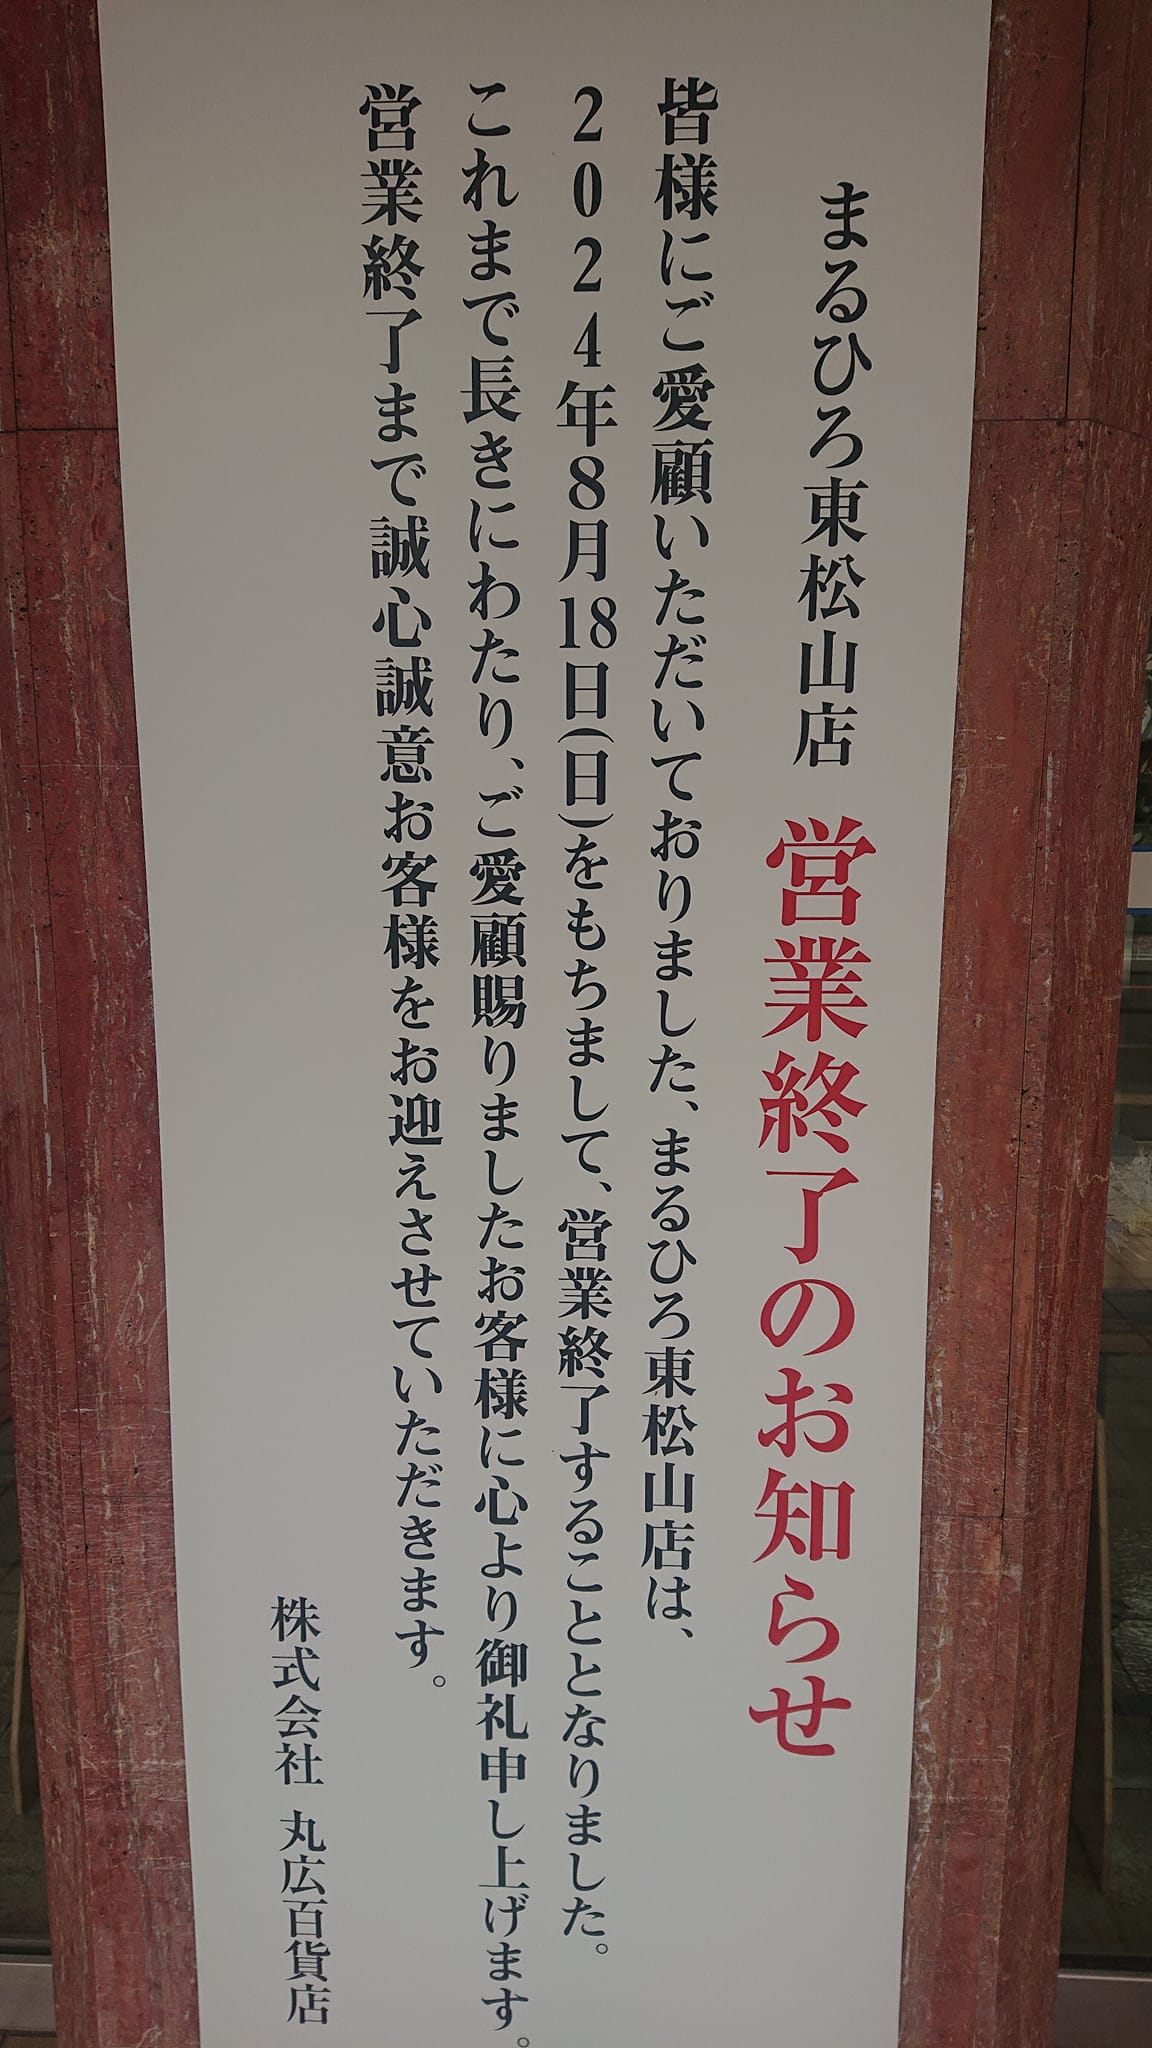 まるひろ東松山店 営業終了のお知らせ
皆様にご愛顧いただいておりました、まるひろ東松山店は、
2024年8月18日(日)をもちまして、営業終了することとなりました。
これまで長きにわたり、ご愛顧賜りましたお客様に心より御礼申し上げます。
営業終了まで誠心誠意お客様をお迎えさせていただきます。
株式会社 丸広百貨店